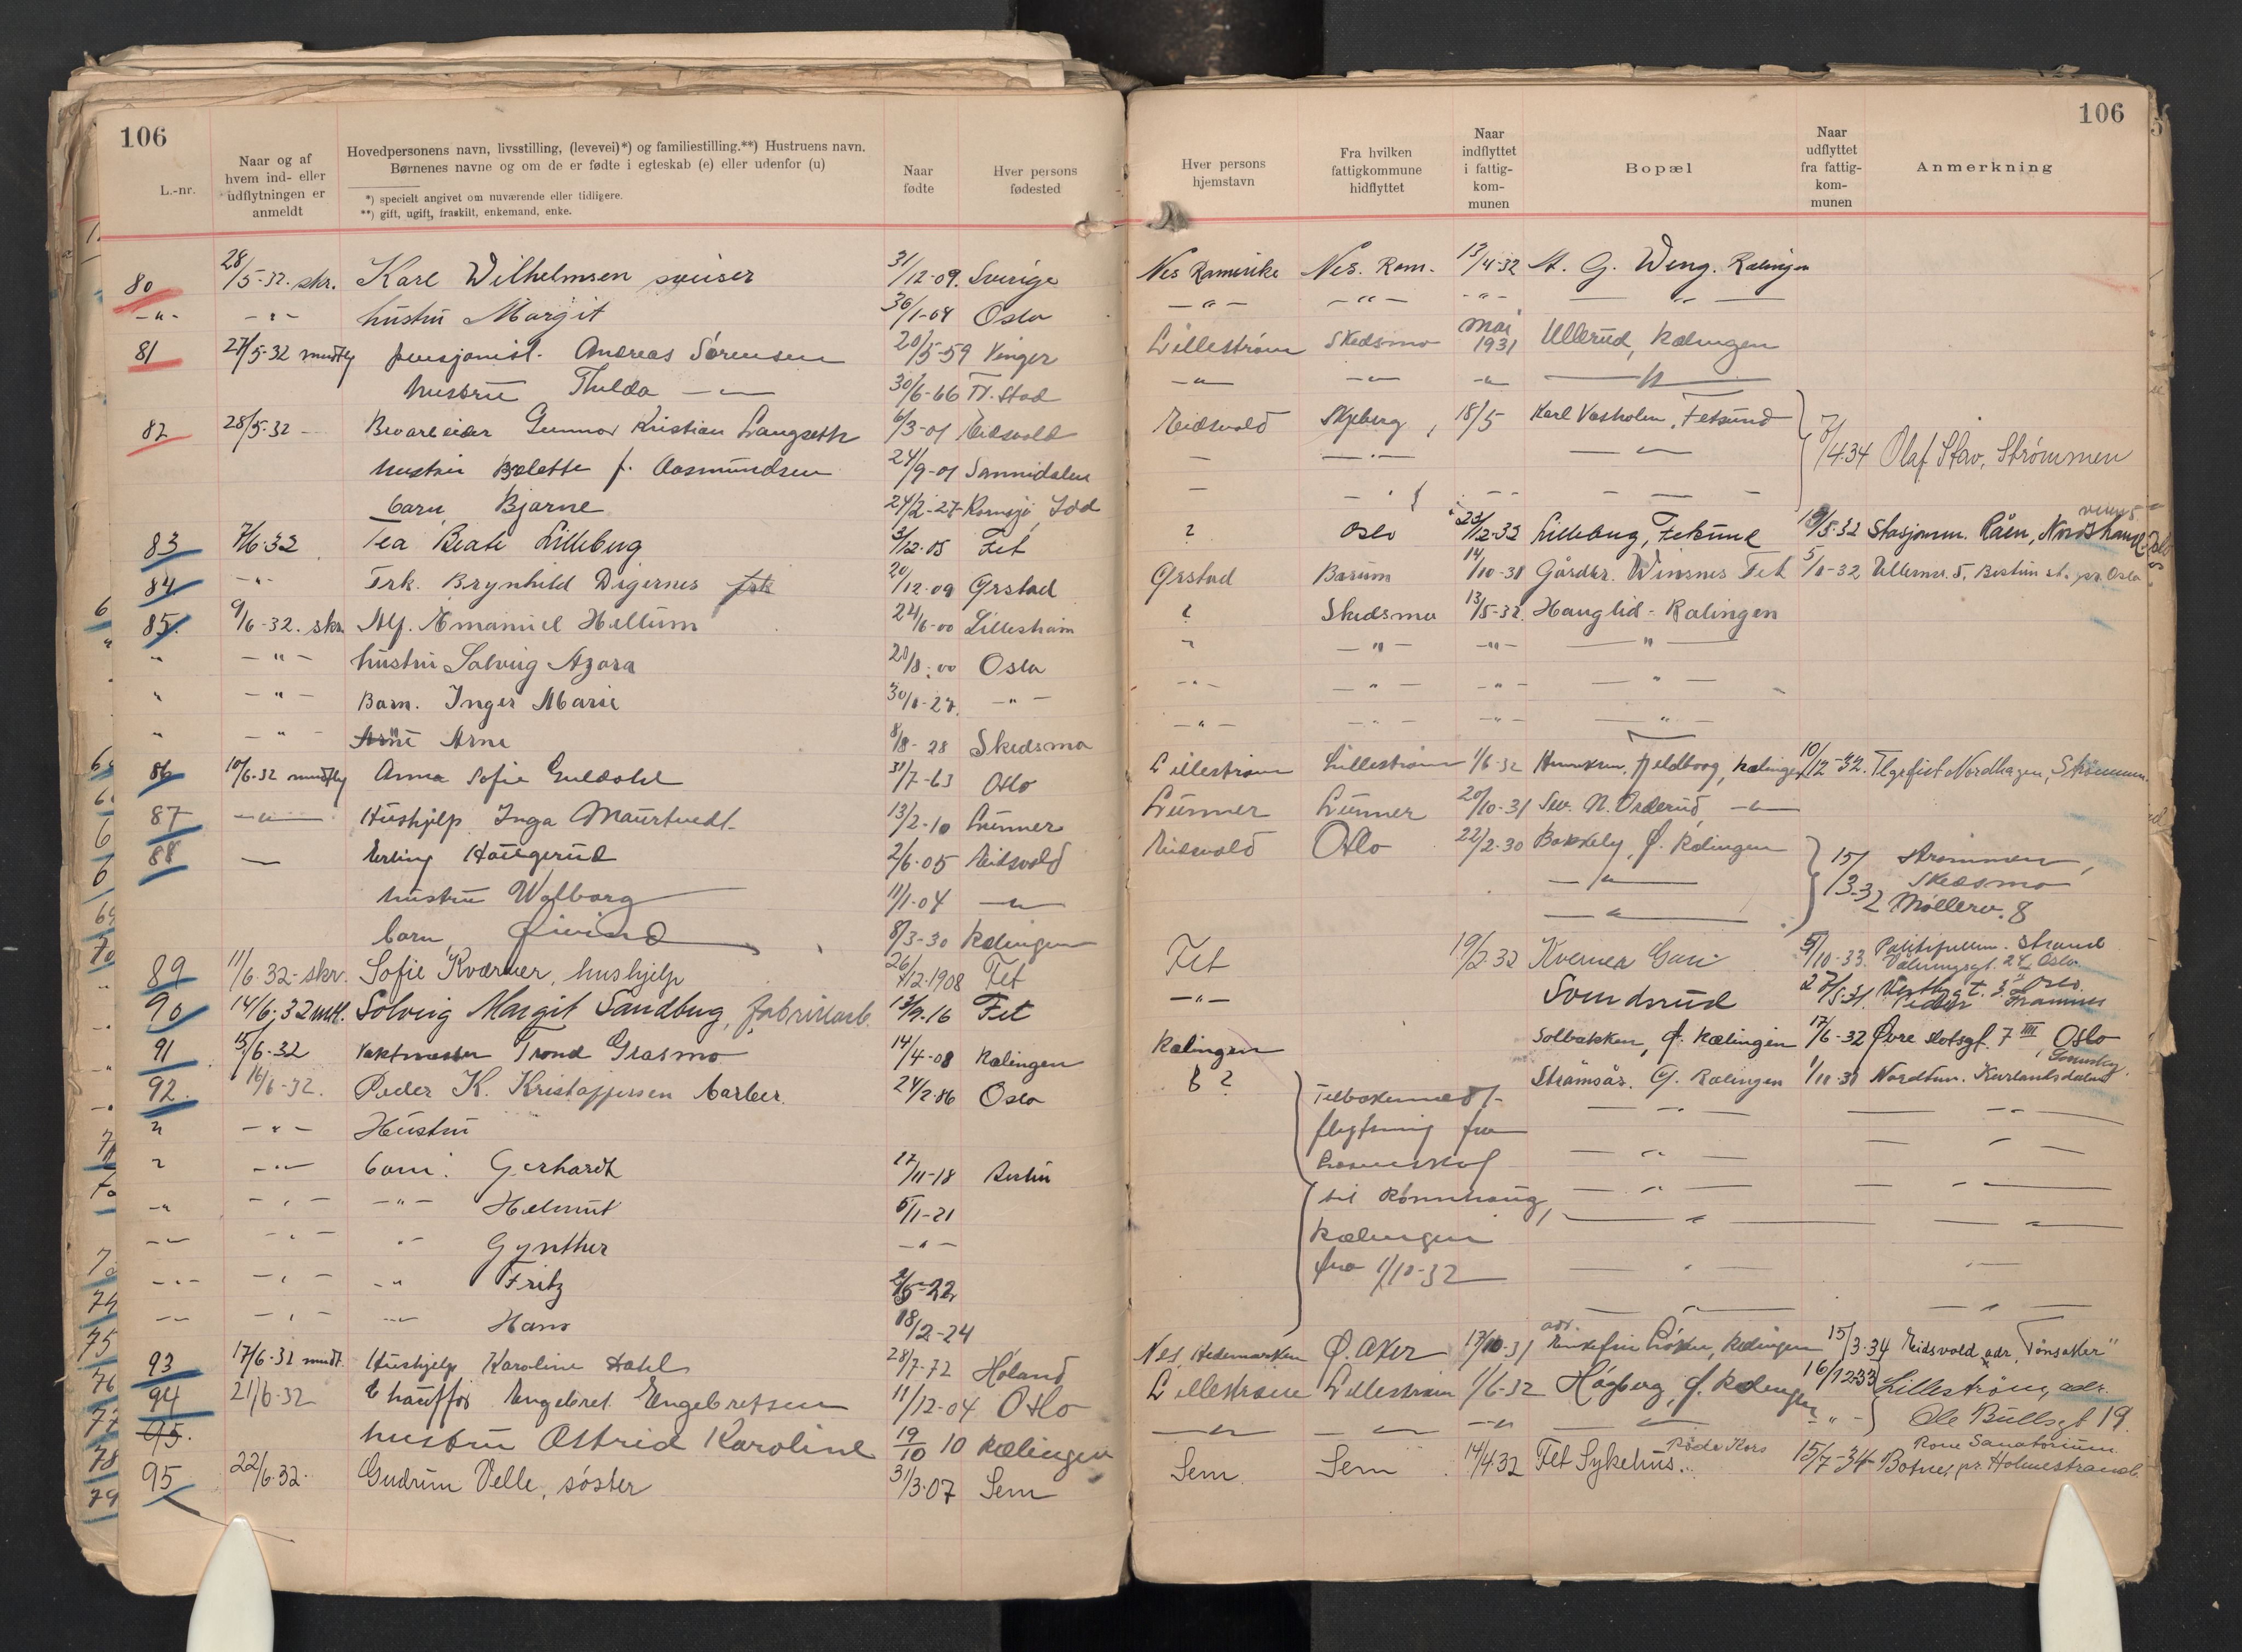 106
L.-nr.
Naar og af hvem ind- eller udflytningen er anmeldt
Hovedpersonens navn, livsstilling, (levevei)*) og familiestilling.**) Hustruens navn.
Børnenes navne og om de er fødte i egteskab (e) eller udenfor (u)
*) specielt angivet om nuværende eller tidligere.
**) gift, ugift, fraskilt, enkemand, enke.
Naar fødte
Hver persons fødested
80 28/5-32. skr. Karl Wilhelmsen sveiser 31/12-09. Sverige
-"- -"- hustru Margit 30/1-04 Oslo
81 27/5-32 muntlig pensjonist. Andreas Sørensen 20/5-59 Vinger
hustru Thilda -"- 30/6-66 Fr. Stad
82 28/5-32 - Gunnar Kristian Langseth 6/3-01 Eidsvold
hustru Bolette f. Aasmundsen 24/9-01 Sannidalen
barn Bjarne 24/2-27 Kornsjø, Idd
83 7/6-32 Tea Beate Lilleberg 3/12-05 Fet
84 -"- Frk. Brynhild Digernes 20/12-09 Ørstad
85. 9/6-32. skr. Alf. Emanuel Hellum 24/6-00 Lillestrøm
" -"- hustru Solveig Azora 20/8-00 Oslo
" -"- Barn. Inger Marie 30/1-27. -"-
" -"- Arne 8/8-28 Skedsmo
86 10/6-32 muntlig Anna Sofie Guldahl 31/7-63 Oslo
87 -"- Hushjelp Inga Maurtvedt 13/2-10 Lunner
88 - Erling Haugerud 2/6-05 Eidsvold
hustru Walborg 11/1-04 -"-
barn Øivind 8/3-30 Rælingen
89 11/6-32-skr. Sofie Kværner, hushjelp 26/12.1908 Fet
90 14/6-32 mtl. Solveig Margit Sandbug, fabrikarb. 13/9-16 Fet
91 15/6-32 Vaktmester Trond Grasmo 14/4-08 Rælingen
92. 16/6-32. Peder K. Kristoffersen barber. 24/2-86 Oslo
" -"- Hustru
" -"- barn: Gerhardt 17/11-18 Berlin
-" -"- -"- Helmut 5/1-21
-"- -"- -"- Gynther -"-
-"- -"- -"- Fritz 2/5-22
-"- -"- -"- Hans 18/12-24
93 17/6-32 mundt. Hushjelp Karoline Dahl 28/7-72 Høland
94 21/6-32 Chauffør Engebret Engebretsen 11/12-04 Oslo
95. hustru Astrid Karoline 19/10 10 Rælingen
95 22/6-32. Gudrun Velle, søster 31/3-07 Sem
106
Hver persons hjemstavn
Fra hvilken fattigkommune hidflyttet
Naar indflyttet i fattig-kom-munen
Bopæl
Naar udflyttet fra fattig-kom-munen
Anmerkning
Nes Romerike Nes. Rom. 13/4-32 A. G. Weng. Rælingen
-"- -"- -"- -"-
Lillestrøm Skedsmo mai 1931 Ullerud, Rælingen
-"- -"- -"- -"-
Eidsvold Skjeberg, 18/5 Karl Vasholm, Fetsund
/4.34 Olaf Stav, Strømmen
? Oslo 23/12-32 Lilleberg, Fetsund /8-32 Stasjonsm. Råen, Nordstrand
Ørstad Bærum 14/10-31 Gårdbr. Winsnes Fet 5/ -32 Ullernv. 5, Bestum st. pr. Oslo
? Skedsmo 13/5-32. Hauglid - Rælingen
" -"- -"- -"-
-"- -"- -"- -"-
-"- -"- -"- -"-
Lillestrøm Lillestrøm 1/6-32 Fjeldborg, Rælingen 10/12-32. Nordhagen, Strømmen
Lunner Lunner 20/10-31 Sev. N. Orderud, -"-
Eidsvold Oslo 22/2-30 Bakkely, Ø. Rælingen 15/3-32 Strømmen, Skedsmo Møllerv. 8
-"-
-"-
Fet 19/2-32 Kverner Gari 5/10-33. Politifullm. Strand Oslo
-"- Sondrud Oslo
Rælingen Solbakken, Ø. Rælingen 17/6-32 Øvre slotsgt. 7 III Oslo
? Strømsås. G. Rælingen 1/10-31 Nordtun. Kurlandsdalen
Lørenskog.
til Rønnhaug, Rælingen fra 1/10-32
Nes, Hedemarken Ø. Aker 17/10-31 adr. Løken, Rælingen 15/3-34 Eidsvold, adr. "Tønsaker"
Lillestrøm Lillestrøm 1/6-32 Høgberg, Ø. Rælingen 16/12-33 Lillestrøm, adr. Ole Bullsgt 19.
-"- -"- -"- -"- -"-
Sem. Sem 14/4-32 Fet Sykehus. Røde Kors 15/7-34 Sanatorium Botne, pr. Holmestrand.